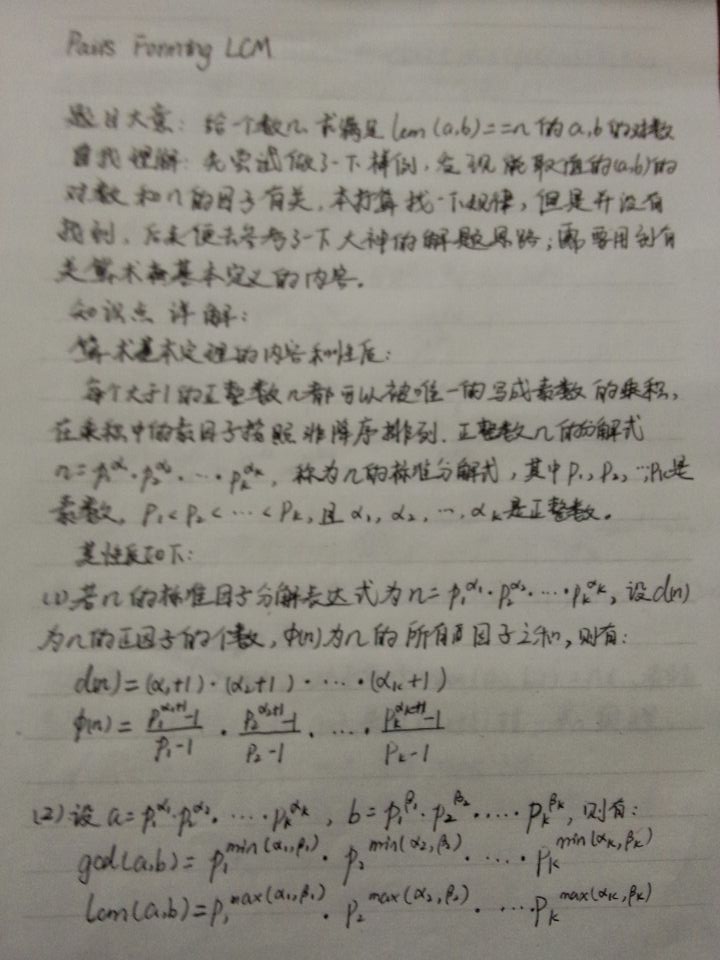 Pairs Forming LCM
题目大意：给个数n，求满足lcm(a,b)==n的a,b的对数
自我理解：先尝试做了一下样例，发现能取值的(a,b)的
对数和n的因子有关，本打算找一下规律，但是并没有
找到，后来便去参考了一下大神的解题思路；需要用到有
关算术基本定义的内容。
知识点详解：
算术基本定理的内容和性质：
每个大于1的正整数n都可以被唯一的写成素数的乘积，
在乘积中的素因子按照非降序排列。正整数n的分解式
n=p₁^α₁·p₂^α₂·…·pₖ^αₖ，称为n的标准分解式，其中p₁，p₂，…，pₖ是
素数，p₁<p₂<…<pₖ，且α₁，α₂，…，αₖ是正整数。
其性质如下：
(1)若n的标准因子分解表达式为n=p₁^α₁·p₂^α₂·…·pₖ^αₖ，设d(n)
为n的正因子的个数，φ(n)为n的所有因子之和，则有：
d(n)=(α₁+1)·(α₂+1)·…·(αₖ+1)
φ(n)=(p₁^(α₁+1)-1)/(p₁-1)·(p₂^(α₂+1)-1)/(p₂-1)·…·(pₖ^(αₖ+1)-1)/(pₖ-1)
(2)设a=p₁^α₁·p₂^α₂·…·pₖ^αₖ，b=p₁^β₁·p₂^β₂·…·pₖ^βₖ，则有：
gcd(a,b)=p₁^min(α₁,β₁)·p₂^min(α₂,β₂)·…·pₖ^min(αₖ,βₖ)
lcm(a,b)=p₁^max(α₁,β₁)·p₂^max(α₂,β₂)·…·pₖ^max(αₖ,βₖ)